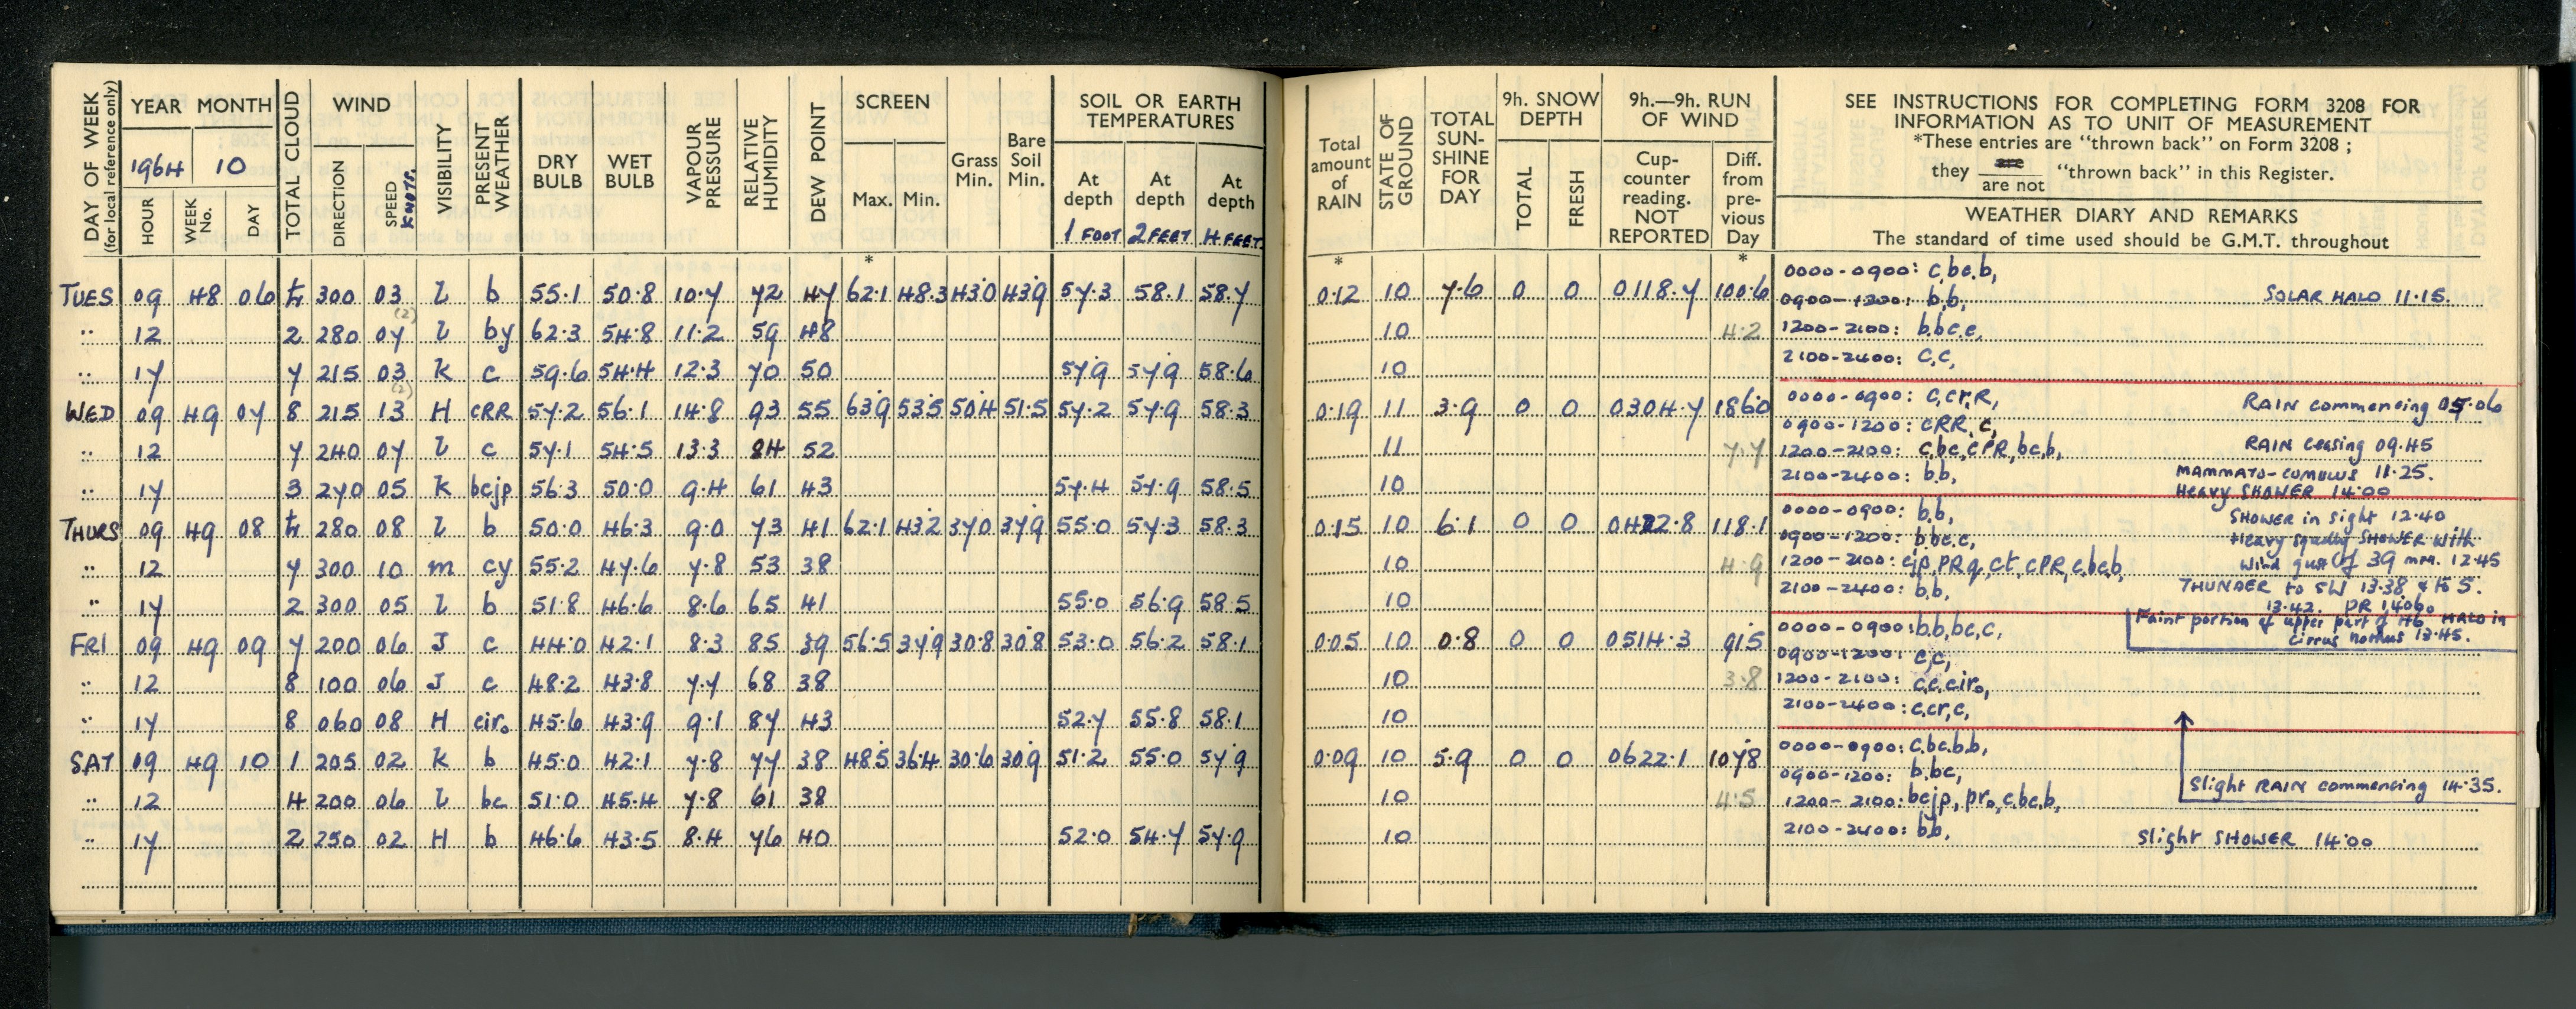 DAY OF WEEK (for local reference only)
YEAR MONTH
1964 10
HOUR WEEK No. DAY
TOTAL CLOUD
WIND
DIRECTION SPEED KNOTS.
VISIBILITY
PRESENT WEATHER
DRY BULB
WET BULB
VAPOUR PRESSURE
RELATIVE HUMIDITY
DEW POINT
SCREEN
Max. Min.
*
Grass Min.
Bare Soil Min.
SOIL OR EARTH TEMPERATURES
At depth At depth At depth
1 FOOT 2 FEET 4 FEET
Total amount of RAIN
*
STATE OF GROUND
TOTAL SUN-SHINE FOR DAY
9h. SNOW DEPTH
TOTAL FRESH
9h.—9h. RUN OF WIND
Cup-counter reading. NOT REPORTED
Diff. from pre-vious Day
*
SEE INSTRUCTIONS FOR COMPLETING FORM 3208 FOR
INFORMATION AS TO UNIT OF MEASUREMENT
*These entries are "thrown back" on Form 3208 ;
they are / are not "thrown back" in this Register.
WEATHER DIARY AND REMARKS
The standard of time used should be G.M.T. throughout
TUES 09 48 06 300 03 l b 55.1 50.8 10.7 72 47 62.1 48.3 43.0 43.9 57.3 58.1 58.7 0.12 10 7.6 0 0 0118.7 100.6
0000-0900: c,bc,b,
0900-1200: b,b, SOLAR HALO 11.15.
.. 12 2 280 07 (2) l by 62.3 54.8 11.2 59 48 10 4.2 1200-2100: b,bc,c,
.. 17 7 215 03 K c 59.6 54.4 12.3 70 50 57.9 57.9 58.6 10 2100-2400: c,c,
WED 09 49 07 8 215 13 (2) H cRR 57.2 56.1 14.8 93 55 63.9 53.5 50.4 51.5 57.2 57.9 58.3 0.19 11 3.9 0 0 0304.7 186.0
0000-0900: c,cr,R, RAIN commencing 05.06
0900-1200: cRR, c,
.. 12 7 240 07 l c 57.1 54.5 13.3 84 52 11 7.7 1200-2100: c,bc,cPR,bc,b, RAIN ceasing 09.45
.. 17 3 270 05 K bcjp 56.3 50.0 9.4 61 43 57.4 57.9 58.5 10 2100-2400: b,b, MAMMATO-CUMULUS 11.25.
Heavy SHOWER 14.00
THURS 09 49 08 280 08 l b 50.0 46.3 9.0 73 41 62.1 43.2 37.0 37.9 55.0 57.3 58.3 0.15 10 6.1 0 0 0422.8 118.1
0000-0900: b,b, SHOWER in sight 12.40
0900-1200: b,bc,c, Heavy squally SHOWER with
.. 12 7 300 10 m cy 55.2 47.6 7.8 53 38 10 4.9 1200-2100: cjp,PRq,ct,cPR,c,bc,b, wind gust of 39 mph. 12.45
.. 17 2 300 05 l b 51.8 46.6 8.6 65 41 55.0 56.9 58.5 10 2100-2400: b,b, THUNDER to SW 13.38 & to S.
13.42. PR 1406
Faint portion of upper part of 46° HALO in
cirrus nothus 13.45.
FRI 09 49 09 7 200 06 J c 44.0 42.1 8.3 85 39 56.5 37.9 30.8 30.8 53.0 56.2 58.1 0.05 10 0.8 0 0 0514.3 91.5
0000-0900: b,b,bc,c,
0900-1200: c,c,
.. 12 8 100 06 J c 48.2 43.8 7.7 68 38 10 3.8 1200-2100: c,c,ciro,
.. 17 8 060 08 H ciro 45.6 43.9 9.1 87 43 52.7 55.8 58.1 10 2100-2400: c,cr,c,
SAT 09 49 10 1 205 02 K b 45.0 42.1 7.8 77 38 48.5 36.4 30.6 30.9 51.2 55.0 57.9 0.09 10 5.9 0 0 0622.1 107.8
0000-0900: c,bc,b,b,
0900-1200: b,bc, Slight RAIN commencing 14.35.
.. 12 4 200 06 l bc 51.0 45.4 7.8 61 38 10 4.5 1200-2100: bcjp, pro,c,bc,b,
.. 17 2 250 02 H b 46.6 43.5 8.4 76 40 52.0 54.7 57.9 10 2100-2400: b,b, Slight SHOWER 14.00